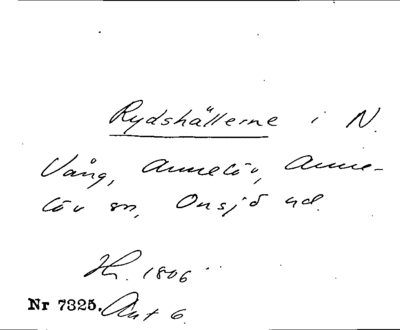 Rydshällerne i N.
Vång, Annelöv, Anne-
löv sn, Onsjö hd.
Hr. 1806
Nr 7325. Akt 6